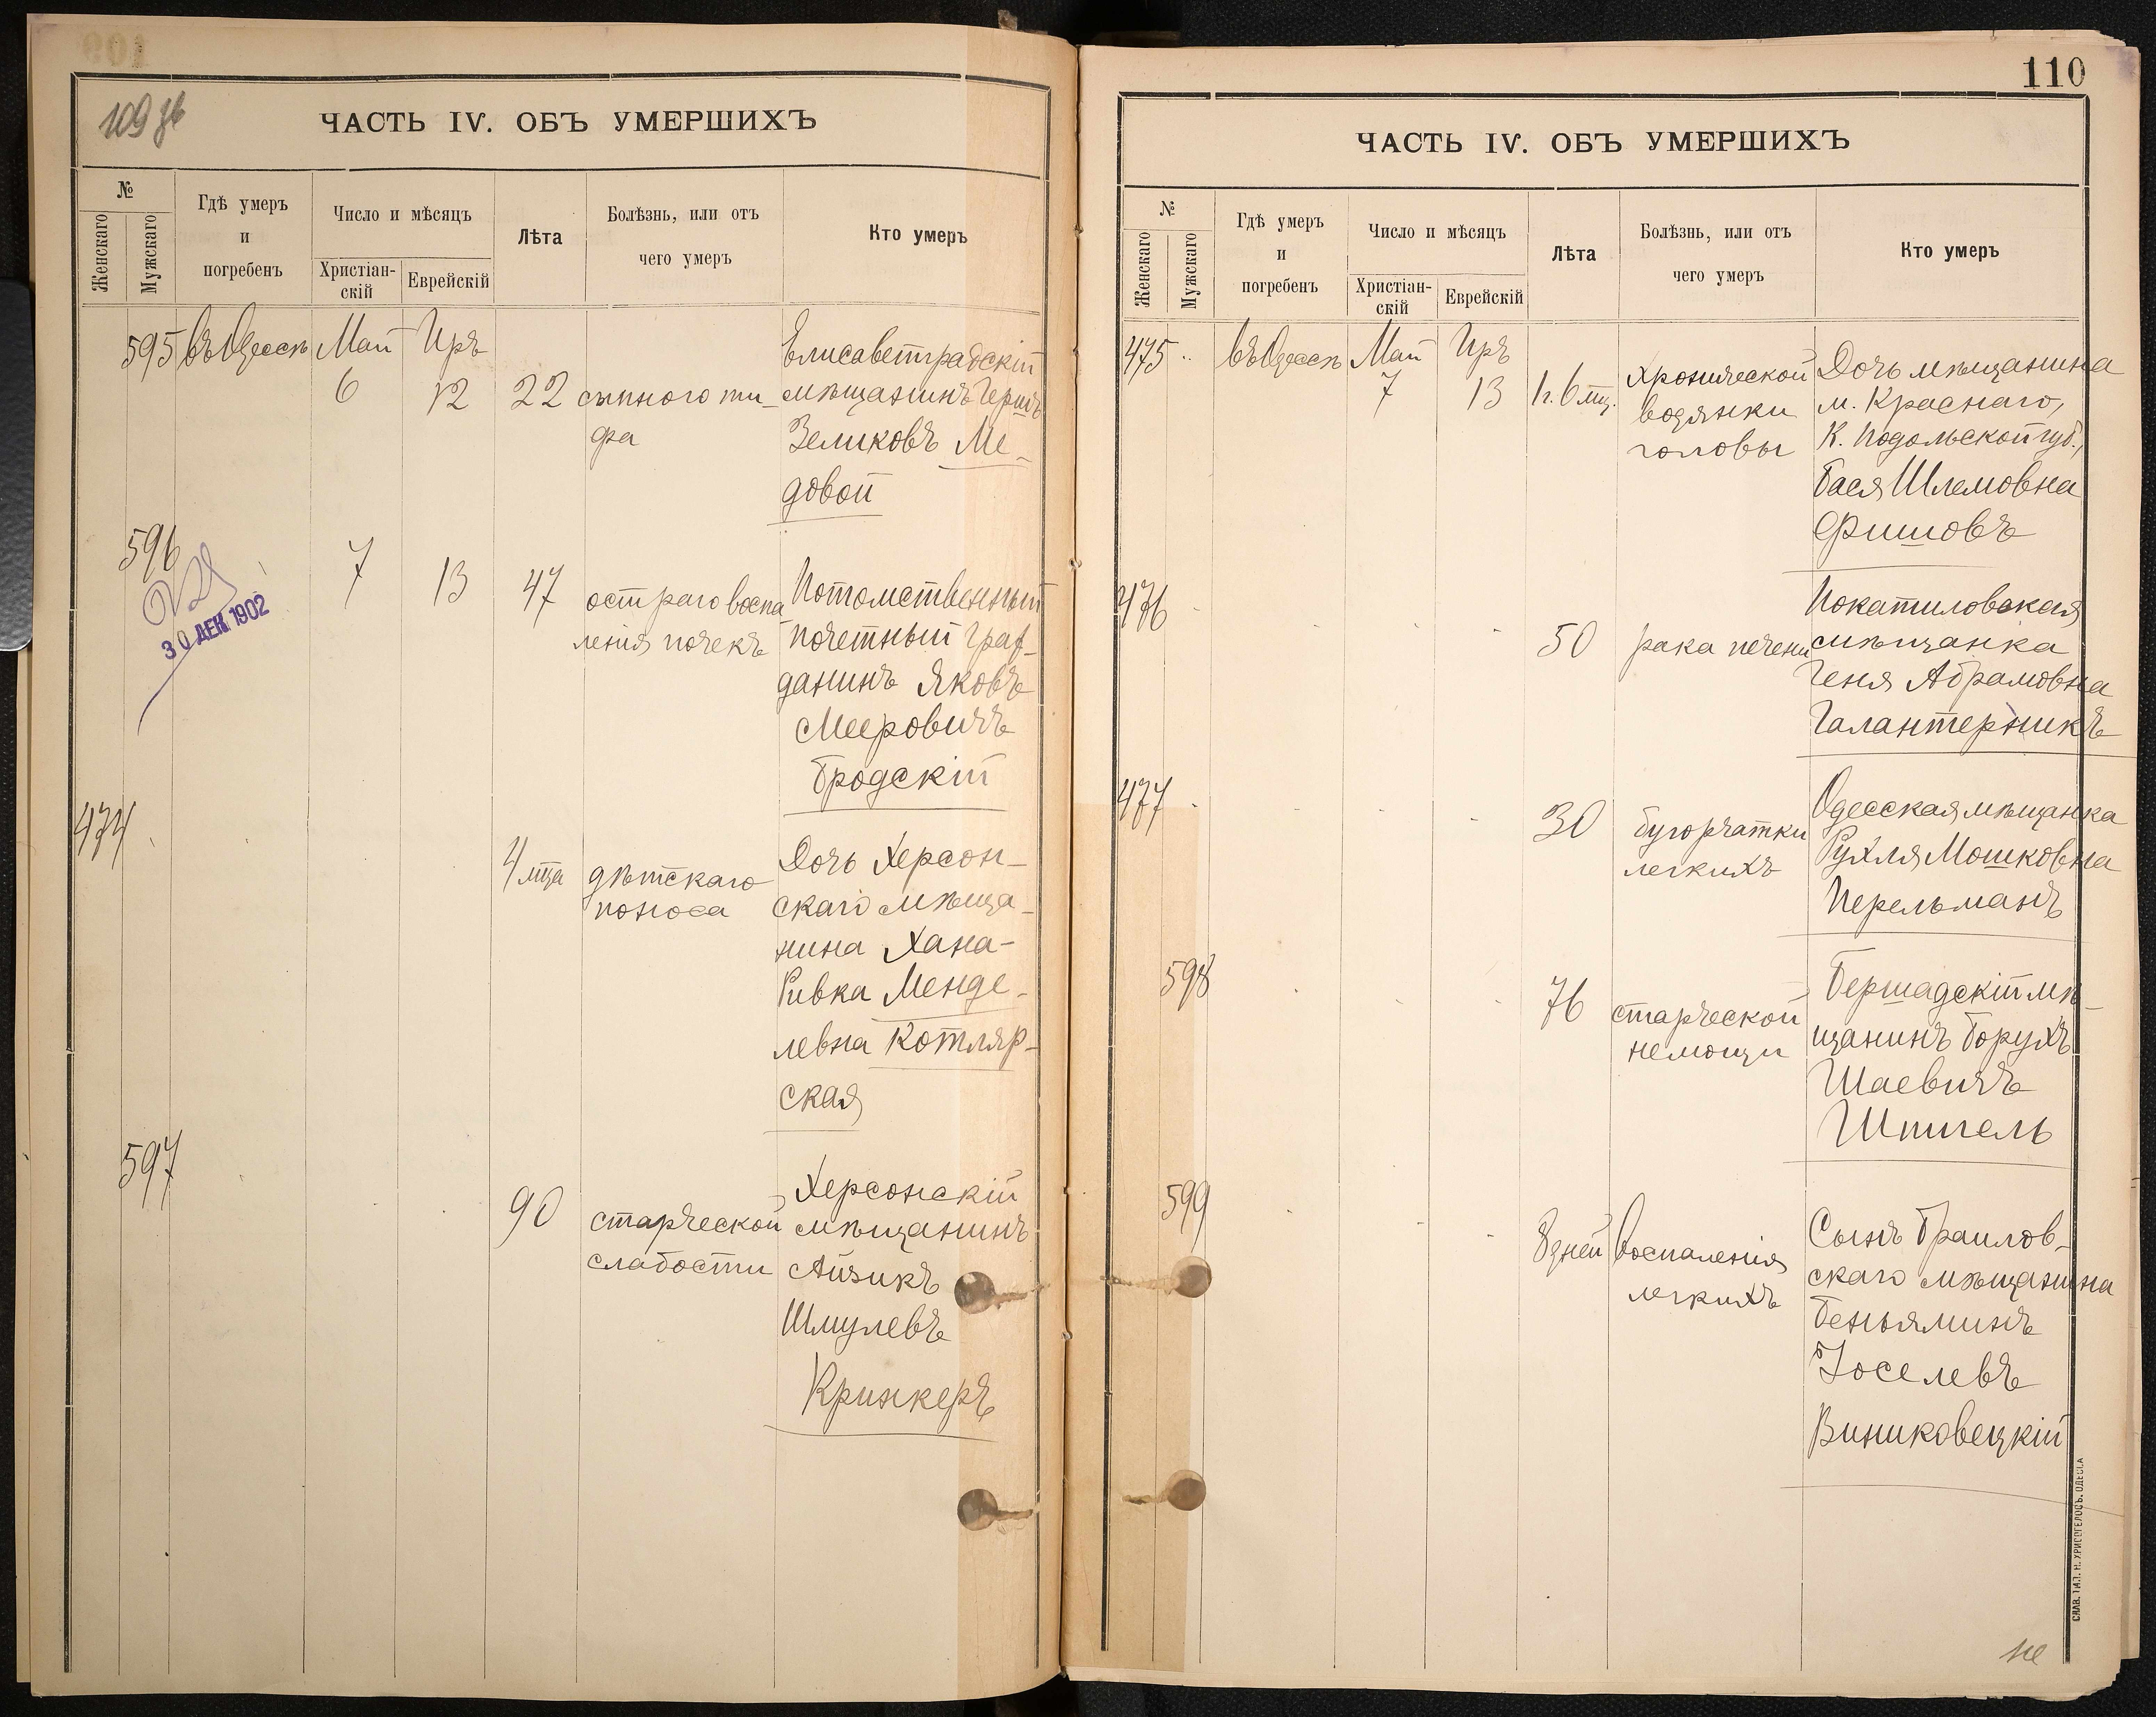 109 зв
ЧАСТЬ IV. ОБЪ УМЕРШИХЪ
№
Женскаго
Мужскаго
Гдѣ умеръ
и
погребенъ
Число и мѣсяцъ
Христіан-
скій
Еврейскій
Лѣта
Болѣзнь, или отъ
чего умеръ
Кто умеръ
595 въ Одессѣ Май Иръ
6 12 22 сыпного ти-
фа
Елисаветградскій
мѣщанинъ Гершъ
Зеликовъ Ме-
довой
596
30 ДЕК 1902
7 13 47 остраго воспа-
ленія почекъ
Потомственный
почетный граж-
данинъ Яковъ
Мееровичъ
Бродскій
474
4 мца дѣтскаго
поноса
Дочь Херсон-
скаго мѣща-
нина Хана-
Ривка Менде-
левна Котляр-
ская
597
90 старческой
слабости
Херсонскій
мѣщанинъ
Айзикъ
Шмулевъ
Кринкеръ
110
ЧАСТЬ IV. ОБЪ УМЕРШИХЪ
№
Женскаго
Мужскаго
Гдѣ умеръ
и
погребенъ
Число и мѣсяцъ
Христіан-
скій
Еврейскій
Лѣта
Болѣзнь, или отъ
чего умеръ
Кто умеръ
475 въ Одессѣ Май Иръ
7 13 1г. 6 мц. Хронической
водянки
головы
Дочь мѣщанина
м. Краснаго,
К. Подольской губ.,
Бася Шлемовна
Фишовъ
476
50 рака печени
Покатиловская
мѣщанка
Геня Абрамовна
Галантерникъ
477
30 бугорчатки
легкихъ
Одесская мѣщанка
Рухля Мошковна
Перельманъ
598
76 старческой
немощи
Бершадскій мѣ-
щанинъ Борухъ
Шаевичъ
Шпигель
599
8 дней воспаленія
легкихъ
Сынъ Браилов-
скаго мѣщанина
Беньяминъ
Іоселевъ
Виниковецкій
СЛАВ. ТИП. Н. ХРИСОГЕЛОСЪ. ОДЕССА